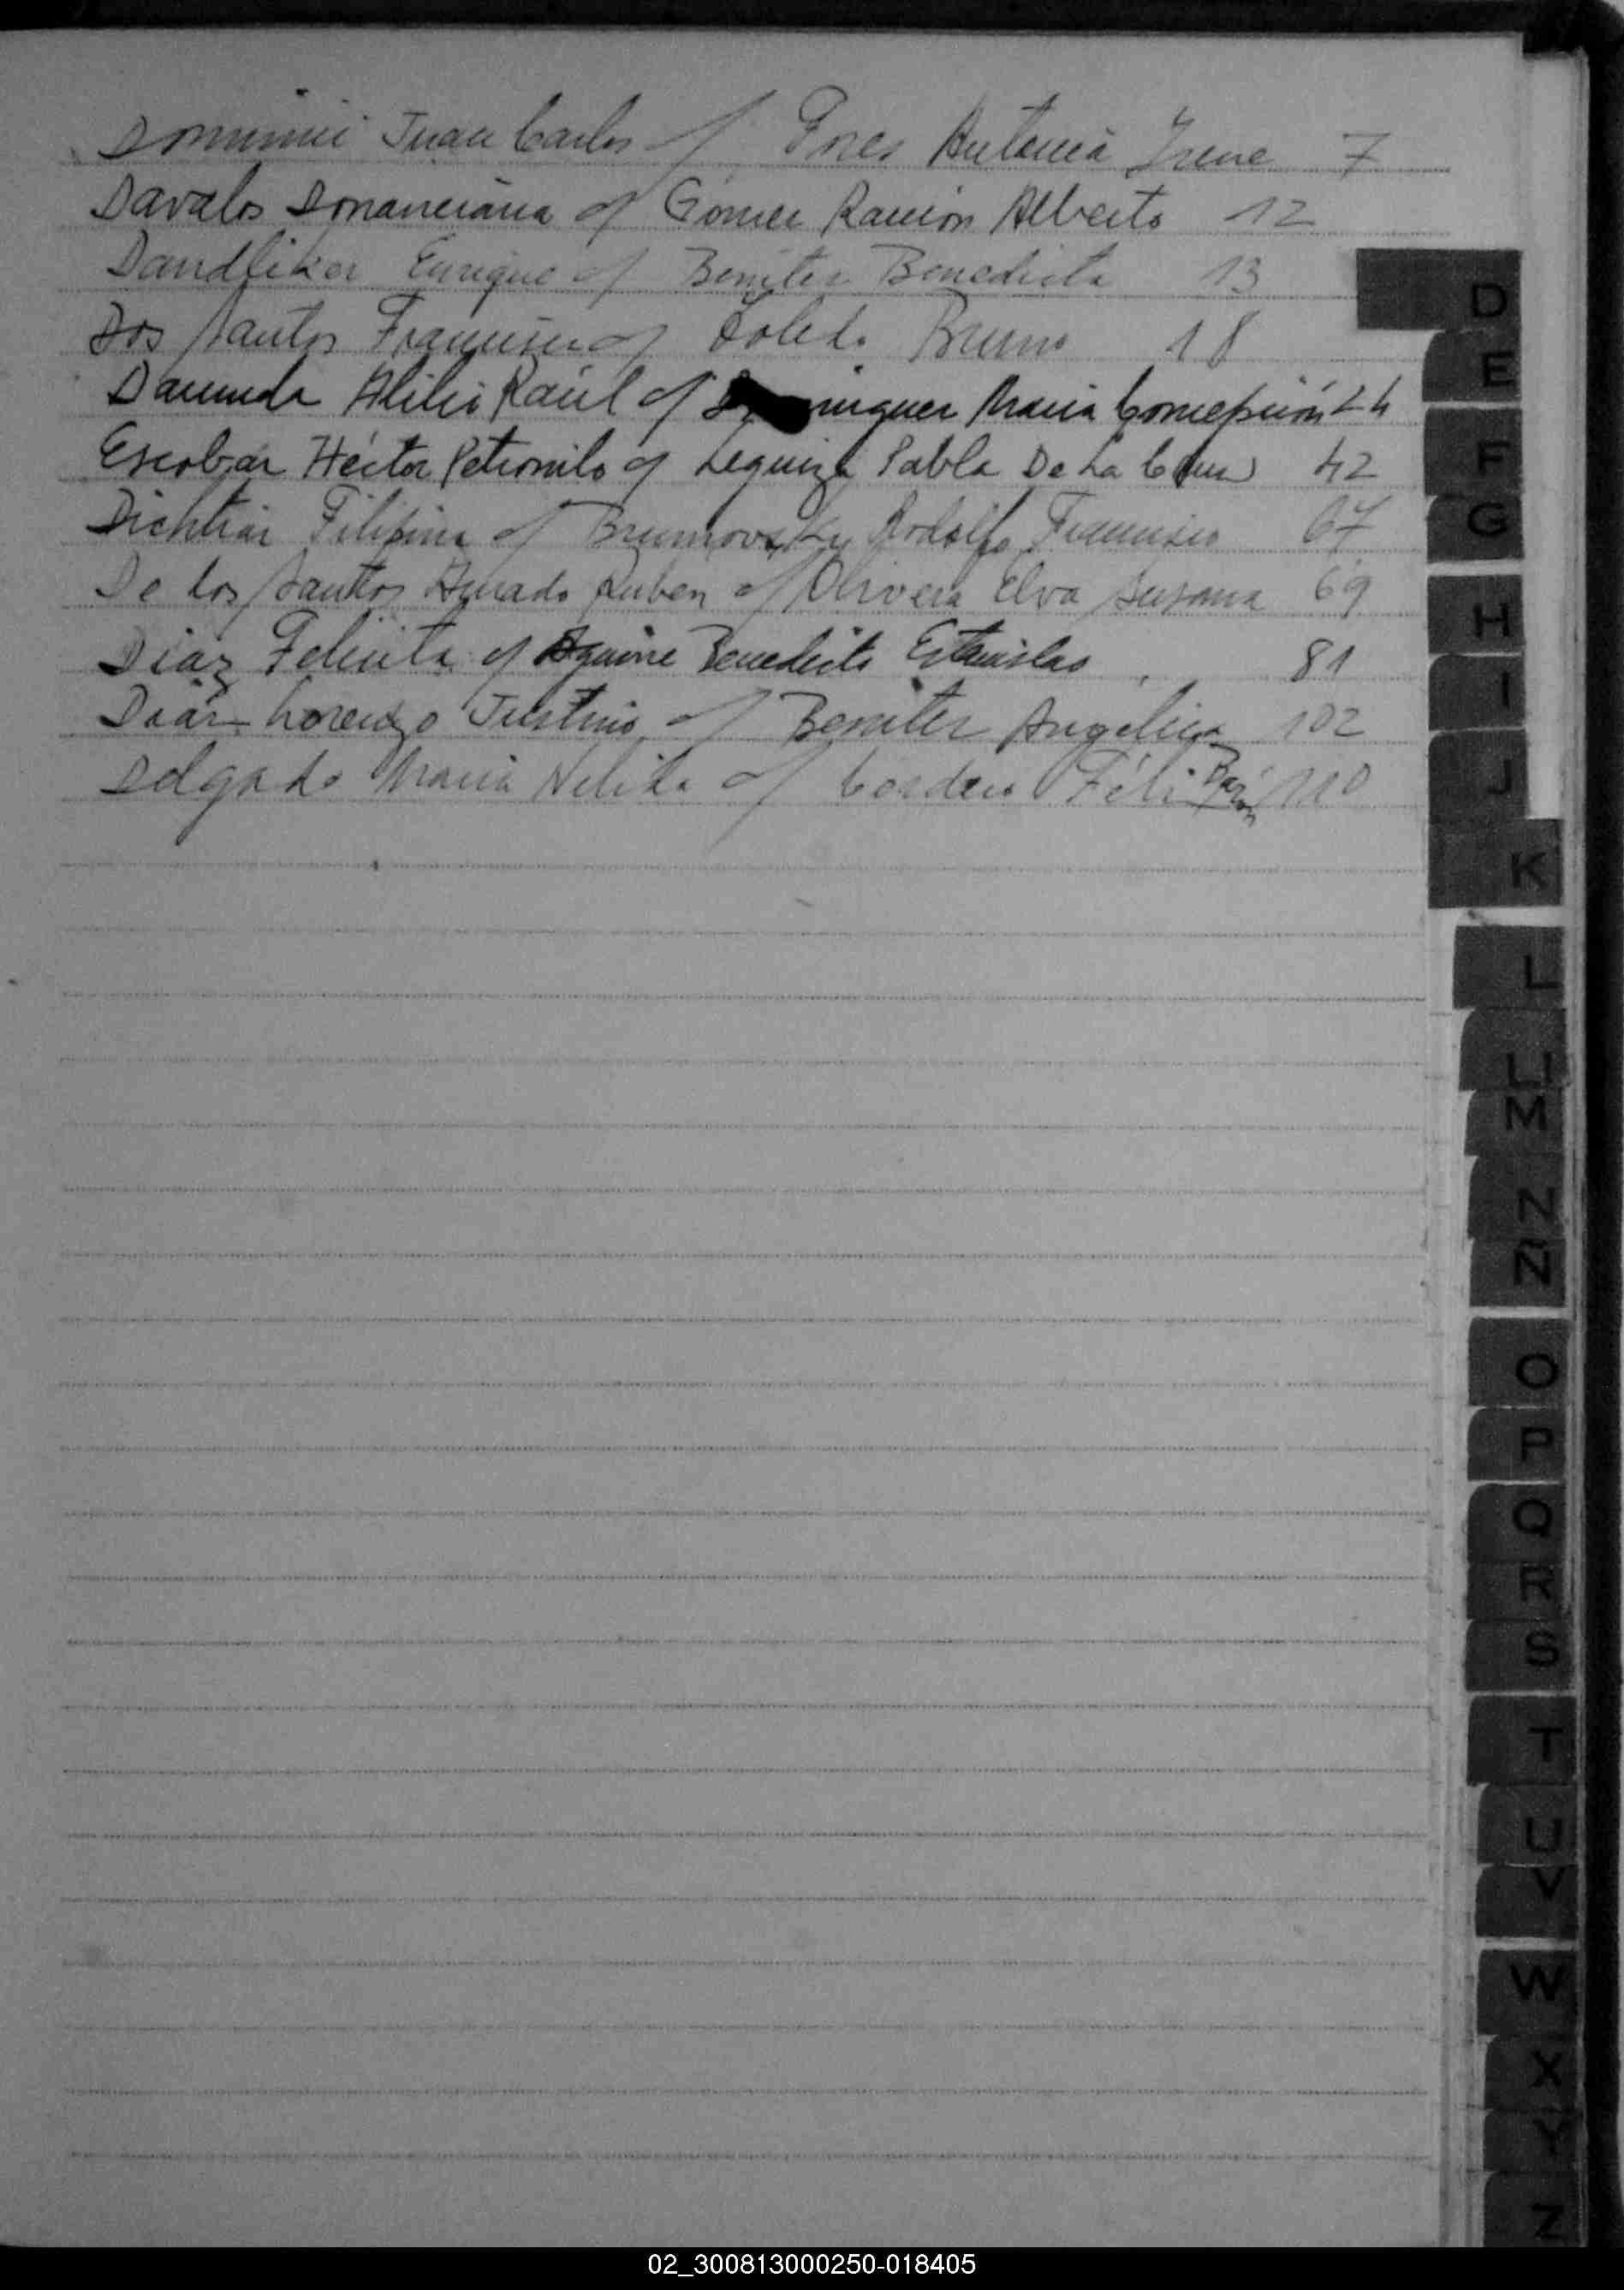 Juan Carlos c/ Antonia Irene 7
Davalos Donanciana c/ Gómez Ramón Alberto 12
Dandliker Enrique c/ Benitez Benedicta 13
Dos Santos Francisco c/ Toledo Bruno 18
Raúl c/ María Concepción 24
Escobar Héctor Petronilo c/ Leguiza Pabla De La Cruz 42
Filipina c/ Brumovsky Rodolfo Francisco 67
De los Santos Amado Ruben c/ Olivera Elva Susana 69
Diaz Felicita c/ Aguirre Benedicto Estanislao 81
Diaz Lorenzo Justino c/ Benitez Angélica 102
Delgado María Nelida c/ Cordero Féli 110
D
E
F
G
H
I
J
K
L
LL
M
N
Ñ
O
P
Q
R
S
T
U
V
W
X
Y
Z
02_300813000250-018405